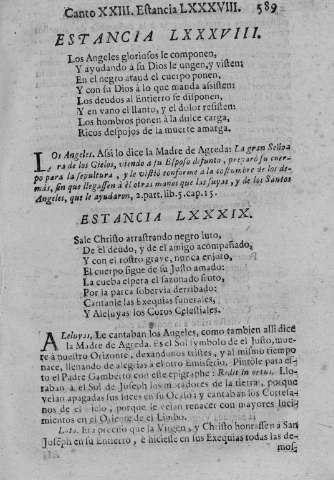 Canto XXIII. Estancia LXXXVIII. 589
ESTANCIA LXXXVIII.
Los Angeles gloriosos le componen,
Y ayudando à su Dios le ungen, y visten;
En el negro ataud el cuerpo ponen,
Y con su Dios à lo que manda assisten:
Los deudos al Entierro se disponen,
Y en vano el llanto, y el dolor resisten:
Los hombros ponen à la dulce carga,
Ricos despojos de la muerte amarga.
LOs Angeles. Assi lo dice la Madre de Agreda: La gran Seño-
ra de los Cielos, viendo à su Esposo difunto, preparò su cuer-
po para la sepultura, y le vistiò conforme à la costumbre de los de-
màs, sin que llegassen à èl otras manos que las suyas, y de los Santos
Angeles, que le ayudaron, 2. part. lib. 5. cap. 15.
ESTANCIA LXXXIX.
Sale Christo arrastrando negro luto,
De el deudo, y de el amigo acompañado,
Y con el rostro grave, nunca enjuto,
El cuerpo sigue de su Justo amado:
La cueba espera el sazonado fruto,
Por la parca sobervia derribado:
Cantanle las Exequias funerales,
Y Aleluyas los Coros Celestiales.
ALeluyas. Le cantaban los Angeles, como tambien alli dice
la Madre de Agreda. Es el Sol symbolo de el Justo, mue-
re à nuestro Orizonte, dexandonos tristes, y al mismo tiempo
nace, llenando de alegrias à el otro Emisferio. Pintòle para es-
to el Padre Gamberto con este epigraphe: Redit in ortus. Llo-
raban à el Sol de Joseph los moradores de la tierra, porque
veian apagadas sus luces en su Ocaso; y cantaban los Cortesa-
nos de el Cielo, porque le veian renacer con mayores luci-
mientos en el Oriente de el Limbo.
Luto. Era preciso que la Virgen, y Christo honrassen à San
Joseph en su Entierro, è hiciesse en sus Exequias todas las de-
mos-